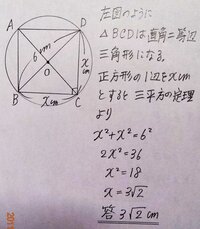 A
D
6cm
O
x
cm
B
xcm
C
左図のように
△BCDは直角二等辺
三角形になる。
正方形の1辺をxcm
とすると三平方の定理
より
x²+x²=6²
2x²=36
x²=18
x=3√2
答 3√2cm